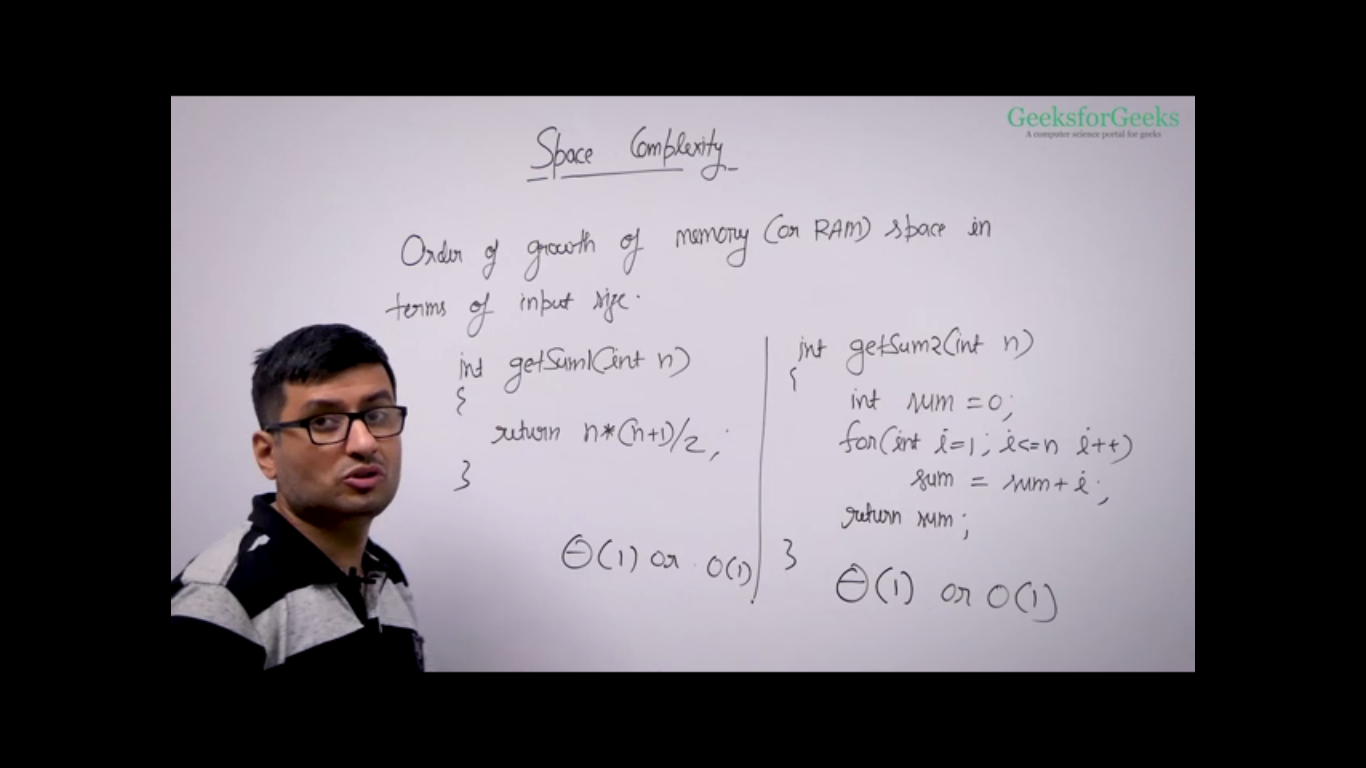 GeeksforGeeks
A computer science portal for geeks
Space Complexity
Order of growth of memory (or RAM) space in
terms of input size.
int getSum1(int n)
{
return n*(n+1)/2;
}
Θ(1) or O(1)
int getSum2(int n)
{
int sum = 0;
for(int i=1; i<=n i++)
sum = sum + i;
return sum;
}
Θ(1) or O(1)